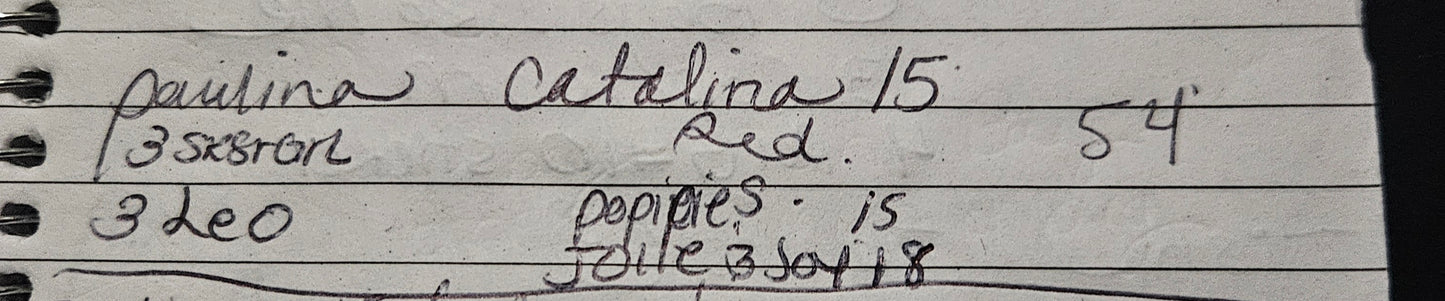 paulina Catalina 15
3 Red. 54
3 Leo popipies. is
Jolie 3 Joy 18